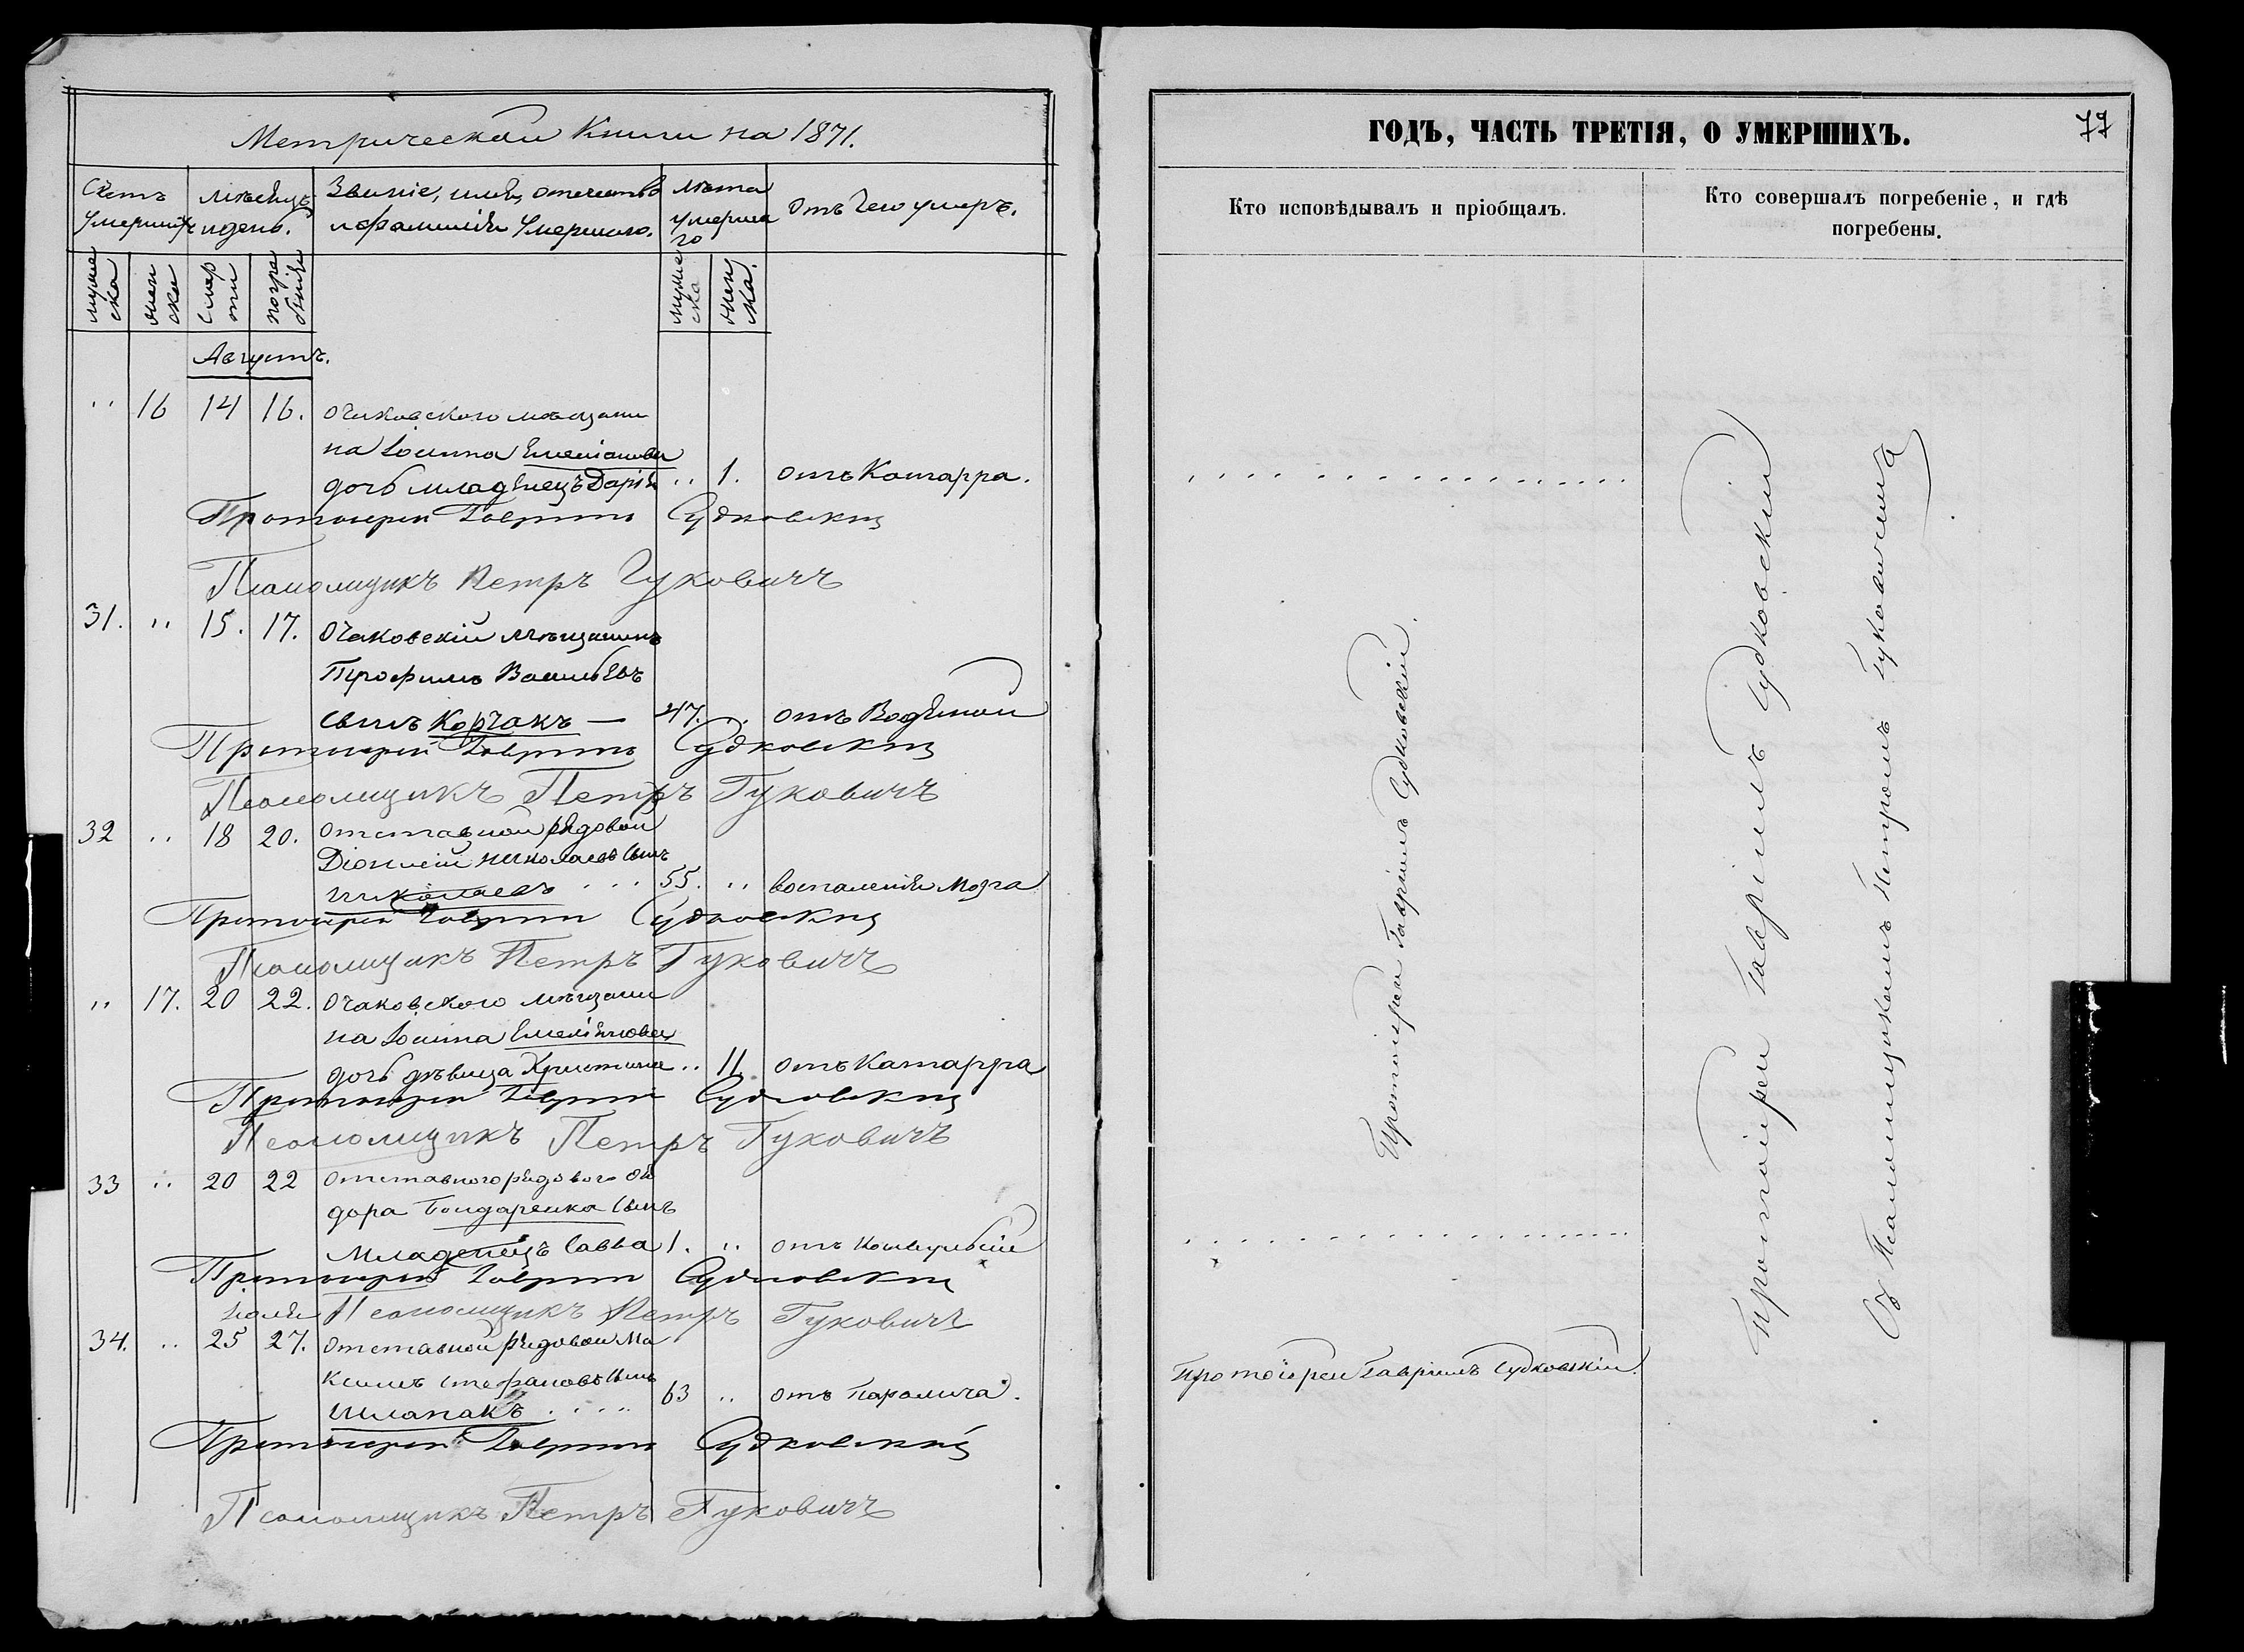 Метрической Книги на 1871.
Счетъ Умершихъ
Мѣсяцъ и день.
Званіе, имя, отечество и фамилія Умершаго.
Лѣта умершаго
Отъ чего умеръ.
мужеска
женска
смерти
погребенія
мужеска
женска.
Августъ.
" 16 14 16. Очаковского мѣщани
на Іоанна Емеліанова
дочь младенецъ Дарія " 1. отъ Катарра.
Протоіерей Гавріилъ Судковскій
Псаломщикъ Петръ Гуковичъ
31. " 15. 17. Очаковскій мѣщанинъ
Трофимъ Васильевъ
сынъ Корчакъ — 47. " отъ Водяной
Протоіерей Гавріилъ Судковскій
Псаломщикъ Петръ Гуковичъ
32 " 18 20. Отставной рядовой
Діонисій Николаевъ сынъ
Николаевъ . . . 55. " воспаленія мозга
Протоіерей Гавріилъ Судковскій
Псаломщикъ Петръ Гуковичъ
" 17. 20 22. Очаковского мѣщани
на Іоанна Емеліянова
дочь дѣвица Христина " 11 отъ Катарра
Протоіерей Гавріилъ Судковскій
Псаломщикъ Петръ Гуковичъ
33 " 20 22 Отставного рядового Ѳе
дора Бондаренка сынъ
Младенецъ Савва 1. " отъ Конвульсіи
Протоіерей Гавріилъ Судковскій
Псаломщикъ Петръ Гуковичъ
34. " 25 27. Отставной рядовой Ма
ксимъ Стефановъ сынъ
Шлапакъ . . . . 63 " отъ Паралича.
Протоіерей Гавріилъ Судковскій
Псаломщикъ Петръ Гуковичъ
ГОДЪ, ЧАСТЬ ТРЕТІЯ, О УМЕРШИХЪ.
77
Кто исповѣдывалъ и пріобщалъ.
Кто совершалъ погребеніе, и гдѣ
погребены.
Протоіерей Гавріилъ Судковскій.
Протоіерей Гавріилъ Судковскій.
Протоіерей Гавріилъ Судковскій
Съ Псаломщикомъ Петромъ Гуковичемъ